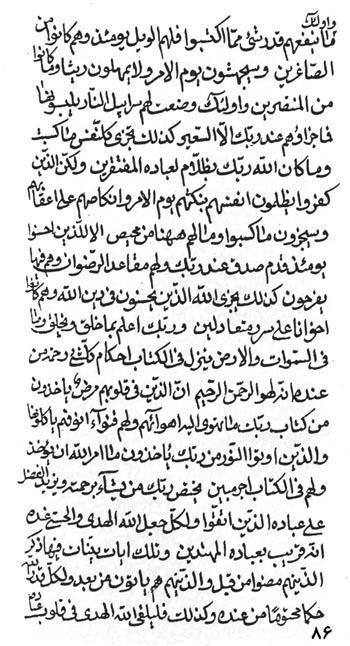 واولئك
ما نفعهم قدر شئ مما اكتسبوا فلهم الويل يومئذ وهم كانوا من
الصاغرين وسيحشرون يوم الامر ولا يمهلون ريثا وما كانوا
من المنصرين واولئك وضعت لهم سرابيل النار يلبسونها
فما جزاؤهم عند ربك الا السعير كذلك يجزى كل نفس ما كسبت
وما كان الله ربك بظلام لعباده المفتقرين ولكن الذين
كفروا يظلمون انفسهم يوم الامر وانكاصهم على اعقابهم
وسيجزون ما كسبوا وما لهم ههنا من محيص الا للذين احسنوا
يومئذ قدم صدق عند ربك ولهم مقاعد الرضوان وهم فيها
يفرحون كذلك يجزى الله الذين يحسنون فى دين الله وهم كانوا
اخوانا على سرر متعادلين وربك اعلم بما خلق ويخلق وما
فى السموات والارض ينزل فى الكتاب احكام كل شئ رحمة من
عنده انه لهو الرحمن الرحيم ان الذين فى قلوبهم مرض ياخذون
من كتاب ربك ما تهوى اليه اهوائهم ولهم جزاء اوفهم بما كانوا
والذين اوتوا النور من ربك ياخذون ما امر الله ان يؤخذ
ولهم فى الكتاب اجر مبين يختص ربك من يشاء برحمته ويزيد الفضل
على عباده الذين اتقوا ولكل جعل الله الهدى والحجج عنده
انه قريب بعباده المهتدين وتلك ايات بينات فيها ذكر
الذينهم مضوا من قبل والذينهم هم ياتون من بعد ولكل قدر الله
حكما محتوما من عنده وكذلك فليلقى الله الهدى فى قلوب عباده
۸۶